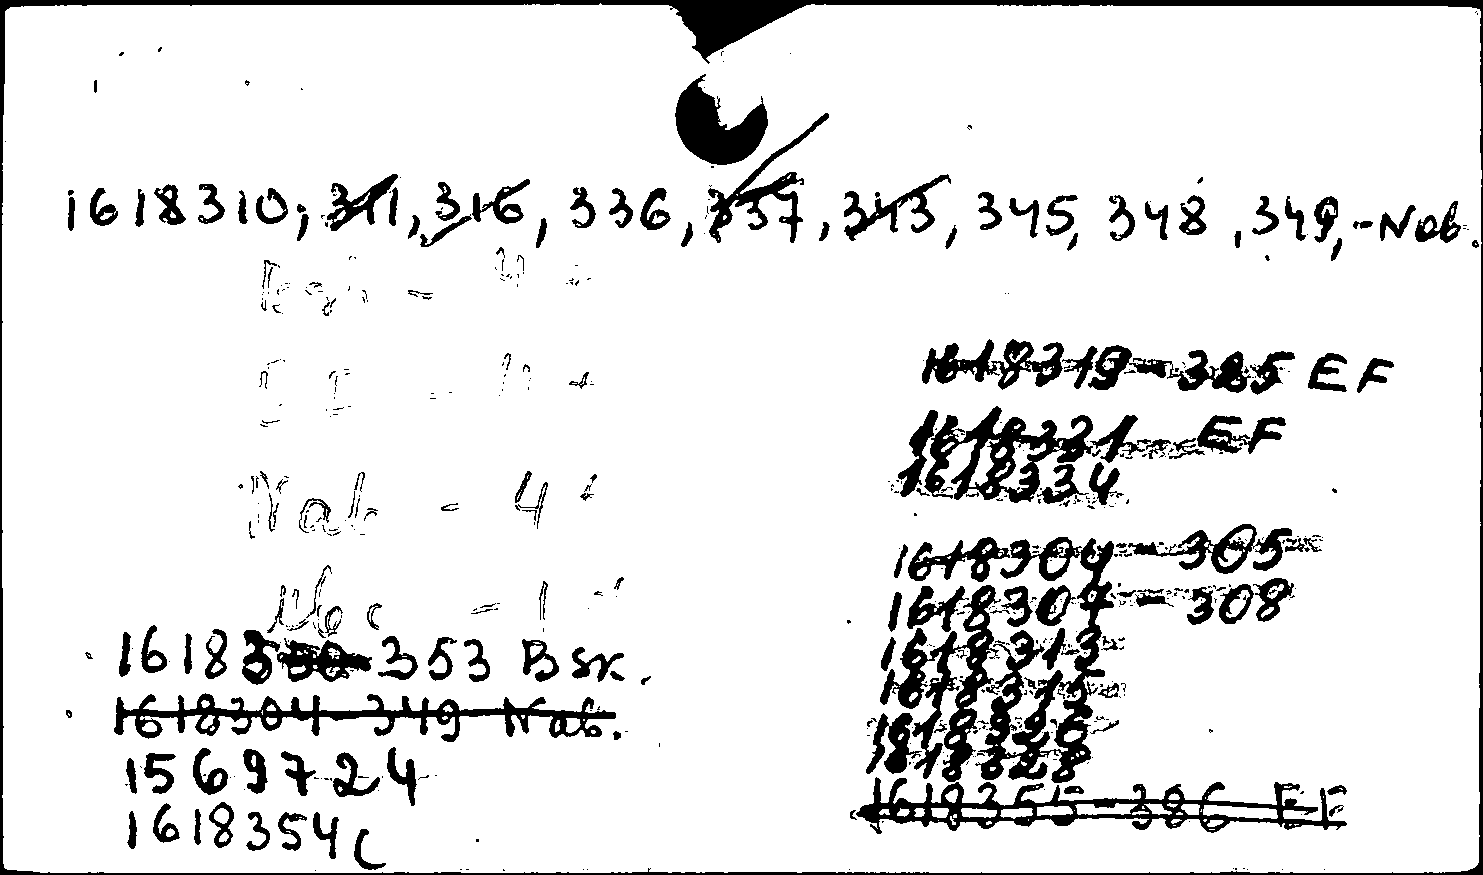 1618310, 311, 316, 336, 337, 343, 345, 348, 349, - Nab.
- 4
- 11
Nab - 4
- 1
16183 353 Bsk.
1618304-349 Nab.
1569724
1618354c
1618319-325 EF
1618331 - EF
1618334
1618304 - 305
1618307 - 308
1618313
1618315
1618326
1618328
1618355-386 EF